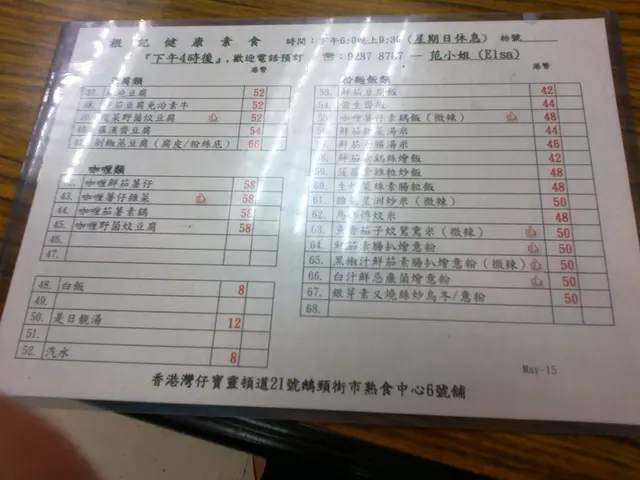 根記健康素食 時間：下午6:00晚上9:30（星期日休息） 枱號
『下午4時後』，歡迎電話預訂 ☎：9287 8767 — 范小姐 (Elsa)
港幣 港幣
腐類
豆腐 52
鮮茄豆腐免治素牛 52
菜野菌炆豆腐 52
羅漢齋豆腐 54
剁椒蒸豆腐（腐皮/粉絲底） 66
咖喱類
咖喱鮮茄薯仔 58
43. 咖喱薯仔雜菜 58
44. 咖喱茄薯素鷄 58
45. 咖喱野菌炆豆腐 58
46.
47.
48. 白飯 8
49.
50. 是日靚湯 12
51.
52. 汽水 8
粉麵飯類
53. 鮮茄豆腐飯 42
54. 齋飯 44
55. 咖喱薯仔素鷄飯（微辣） 48
56. 鮮茄湯米 44
57. 腸湯米 46
58. 鮮茄鷄絲燴飯 42
59. 炒飯 48
60. 生菜絲素腸粒飯 48
61. 星洲炒米（微辣） 50
62. 炆米 48
63. 魚香茄子炆鴛鴦米（微辣） 50
64. 鮮茄素腸扒燴意粉 50
65. 黑椒汁鮮茄素腸扒燴意粉（微辣） 50
66. 白汁鮮露菌燴意粉 50
67. 銀芽素叉燒絲炒烏冬/意粉 50
68.
May-15
香港灣仔寶靈頓道21號鵝頸街市熟食中心6號舖